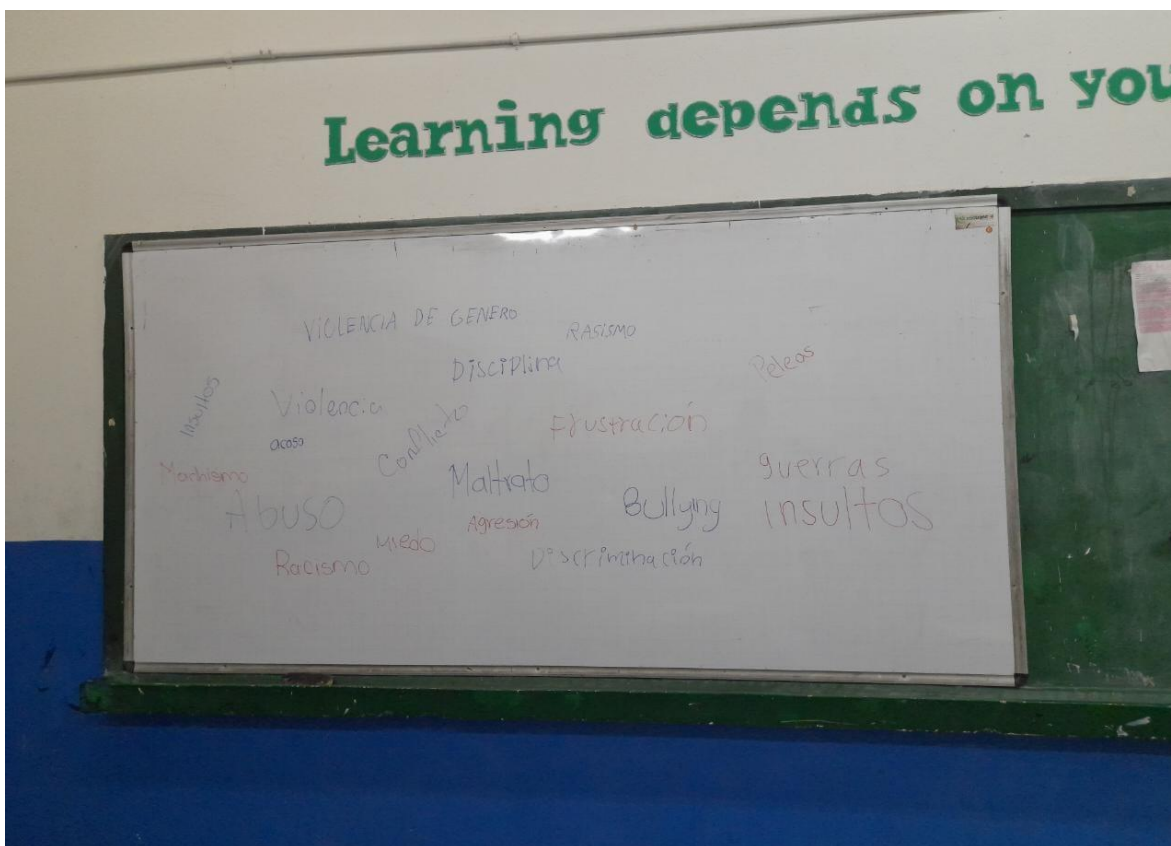 Learning depends on you
VIOLENCIA DE GENERO
RASISMO
Disciplina
Peleas
Insultos
Violencia
Conflicto
Frustración
acoso
Machismo
Maltrato
guerras
Abuso
Bullying
insultos
Agresión
Miedo
Racismo
Discriminación